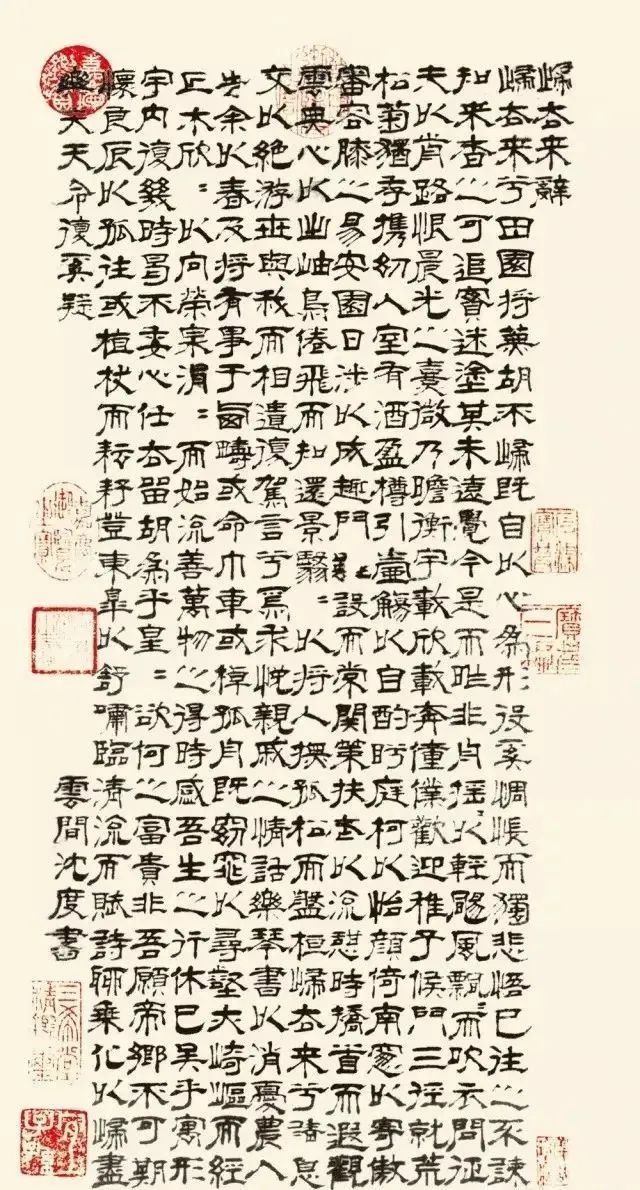 歸去來辭
歸去來兮田園將蕪胡不歸既自以心為形役奚惆悵而獨悲悟已往之不諫
知來者之可追實迷塗其未遠覺今是而昨非舟搖以輕颺風飄而吹衣問征
夫以前路恨晨光之熹微乃瞻衡宇載欣載奔僮僕歡迎稚子候門三徑就荒
松菊猶存攜幼入室有酒盈樽引壺觴以自酌眄庭柯以怡顏倚南窗以寄傲
審容膝之易安園日涉以成趣門雖設而常關策扶老以流憩時矯首而遐觀
雲無心以出岫鳥倦飛而知還景翳〻以將入撫孤松而盤桓歸去來兮請息
交以絕游世與我而相遺復駕言兮焉求悅親戚之情話樂琴書以消憂農人
告余以春及將有事于西疇或命巾車或棹孤舟既窈窕以尋壑亦崎嶇而經
丘木欣〻以向榮泉涓〻而始流善萬物之得時感吾生之行休已矣乎寓形
宇內復幾時曷不委心任去留胡為乎皇〻欲何之富貴非吾願帝鄉不可期
懷良辰以孤往或植杖而耘耔登東皋以舒嘯臨清流而賦詩聊乘化以歸盡
樂夫天命復奚疑
雲間沈度書
三希堂精鑑璽
宜子孫